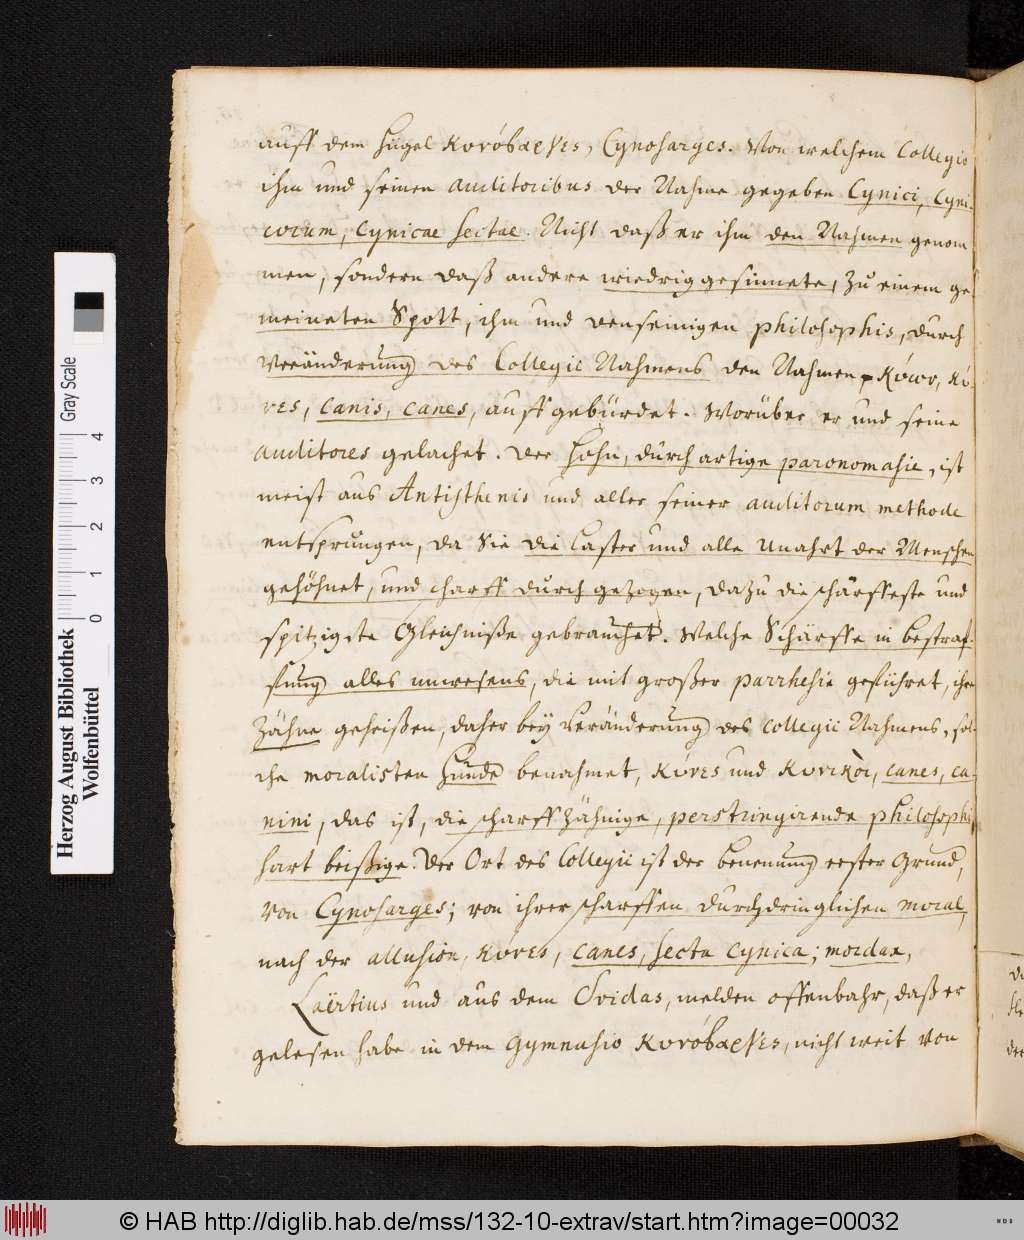 auff dem hügel κυνόσαργες, Cynosarges. Von welchem Collegio
ihm und seinen auditoribus der Nahme gegeben Cynici, Cyni-
corum, Cynicae sectae. Nicht daß er ihm den Nahmen genom
men, sondern daß andere wiedrig gesinnete, zu einem ge-
meineten Spott, ihm und den seinigen philosophis, durch
Veränderung des Collegii Nahmens den Nahmen κύων, κύ-
νες, canis, canes, auffgebürdet. Worüber er und seine
auditores gelachet. Der Hohn, durch artige paronomasie, ist
meist aus Antisthenis und aller seiner auditorum methode
entsprungen, da Sie die Laster und alle Unahrt der Menschen
gehöhnet, und charff durch gezogen, dazu die schärffeste und
spitzigste Gleichniße gebrauchet. Welche Schärffe in bestraf-
fung alles unwesens, die mit großer parrhesie geführet, ihre
Zähne geheißen, daher bey Veränderung des Collegii Nahmens, sol-
che moralisten Hunde benahmet, κύνες und κυνικοὶ, canes, ca-
nini, das ist, die scharffzähnige, perstringirende philosophi,
hart beißige. Der Ort des Collegii ist der benennung erster Grund,
von Cynosarges; von ihrer scharffen durchdringlichen moral,
nach der allusion, κύνες, canes, secta Cynica; mordax,
Laërtius und aus dem Svidas, melden offenbahr, daß er
gelesen habe in dem Gymnasio κυνόσαργες, nicht weit von
Herzog August Bibliothek
Wolfenbüttel
Gray Scale
0 1 2 3 4
© HAB http://diglib.hab.de/mss/132-10-extrav/start.htm?image=00032